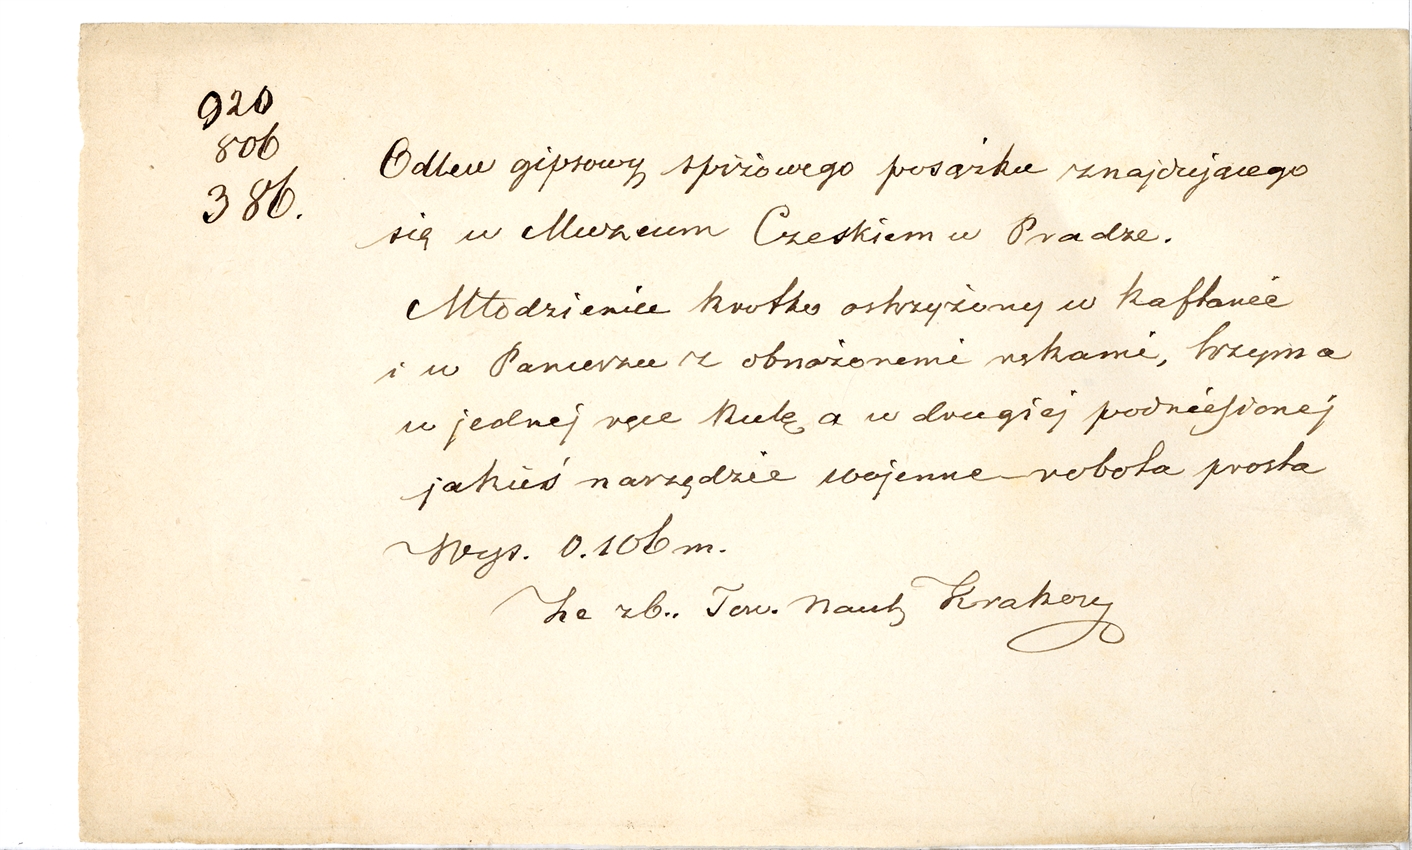 920
806
386.
Odlew gipsowy spiżowego posążku znajdującego
się w Muzeum Czeskiem w Pradze.
Młodzieniec krotko ostrzyżony w kaftanie
i w Pancerzu z obnażonemi rękami, trzyma
w jednej ręce kulę a w drugiej podniesionej
jakieś narzędzie wojenne - robota prosta
Wys. 0.106 m.
Ze zb.. Tow. Nauk Krakow